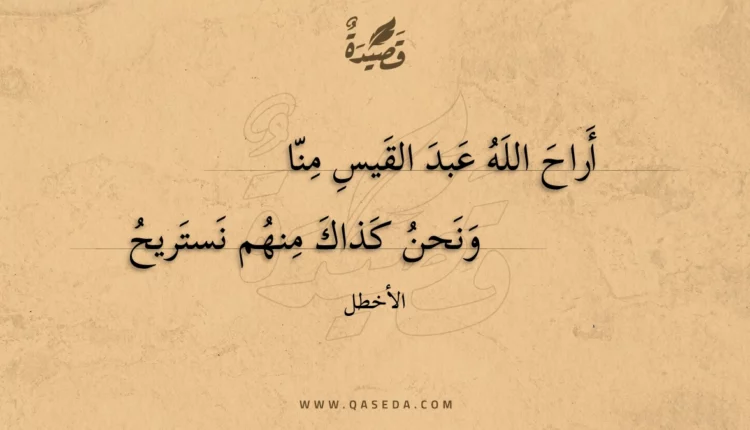 قَصِيْدَةٌ
أَراحَ اللَهُ عَبدَ القَيسِ مِنّا
وَنَحنُ كَذاكَ مِنهُم نَستَريحُ
الأخطل
WWW.QASEDA.COM